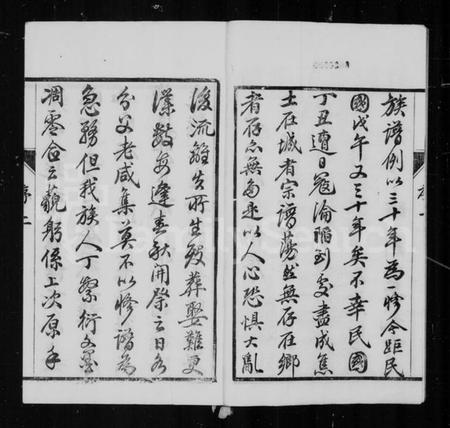 族譜例以三十年為一修今距民
國戊午又三十年矣不幸民國
丁丑遭日寇淪陷到處盡成焦
土在城者宗譜蕩然無存在鄉
者存亦無多是以人心恐懼大亂
後流離失所生歿葬娶難更
僕數每逢春秋開祭之日各
分父老咸集莫不以修譜為
急務但我族人丁繁衍
凋零合云藐躬係上次原手
序二